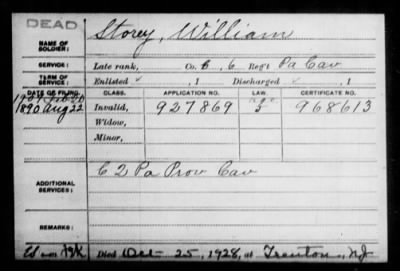 DEAD
NAME OF SOLDIER: Storey, William
SERVICE: Late rank, Co. B, 6 Reg't Pa Cav
TERM OF SERVICE: Enlisted , 1 Discharged , 1
DATE OF FILING. CLASS. APPLICATION NO. LAW. CERTIFICATE NO.
1890 Aug 22 Invalid, 927869 968613
Widow,
Minor,
ADDITIONAL SERVICES: C 2 Pa Prov Cav
REMARKS:
Died Dec 25, 1928, at Trenton, NJ